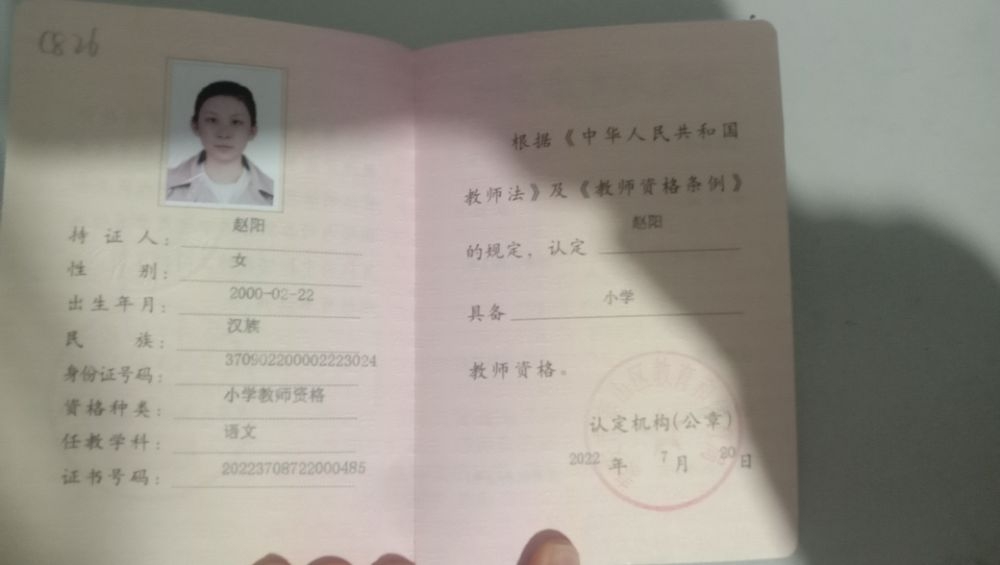 C826
持证人：赵阳
性别：女
出生年月：2000-02-22
民族：汉族
身份证号码：370902200002223024
资格种类：小学教师资格
任教学科：语文
证书号码：20223708722000485
根据《中华人民共和国
教师法》及《教师资格条例》
的规定，认定 赵阳
具备 小学
教师资格。
认定机构(公章)
2022年7月20日